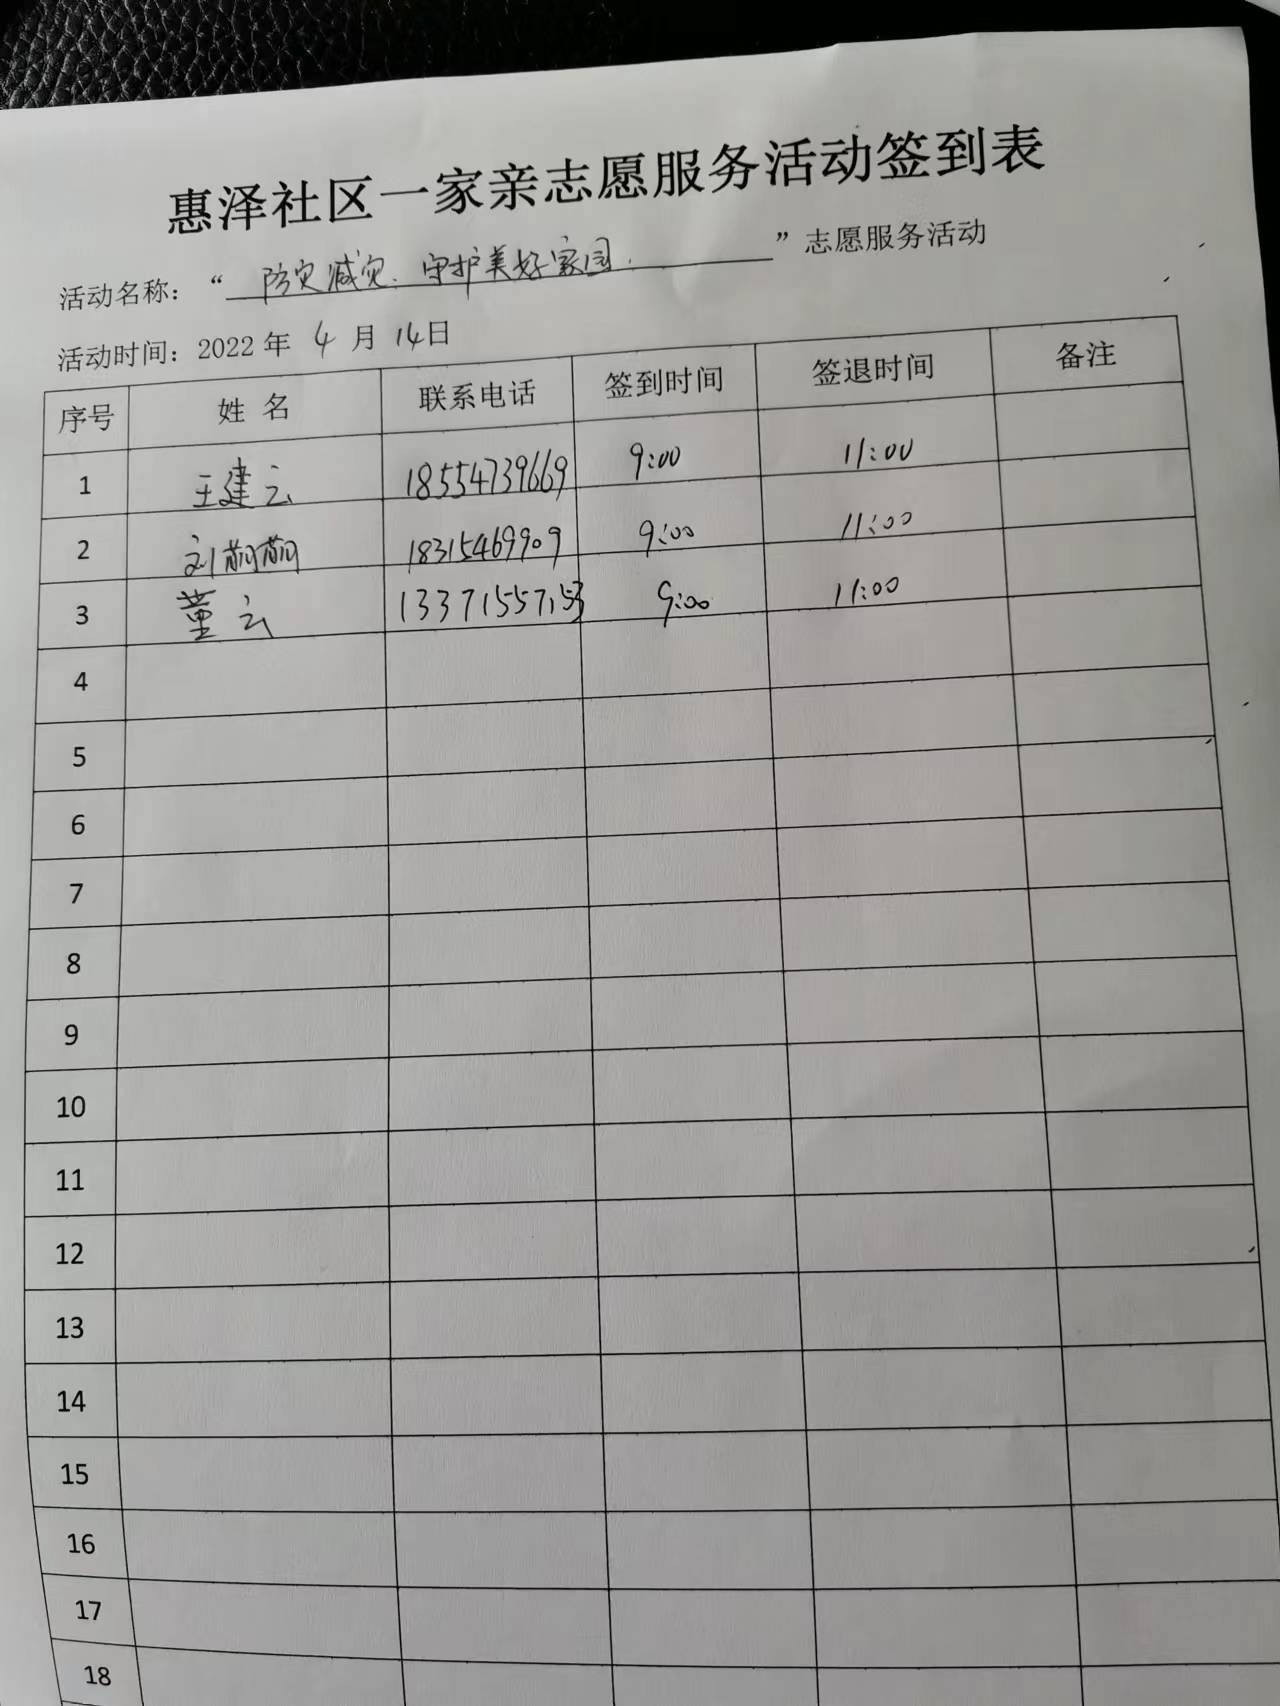 惠泽社区一家亲志愿服务活动签到表
活动名称：“防灾减灾.守护美好家园.”志愿服务活动
活动时间：2022年 4 月 14日
序号 姓 名 联系电话 签到时间 签退时间 备注
1 王建云 18554739669 9:00 11:00
2 刘萌萌 18315469909 9:00 11:00
3 董云 13371557153 9:00 11:00
4
5
6
7
8
9
10
11
12
13
14
15
16
17
18